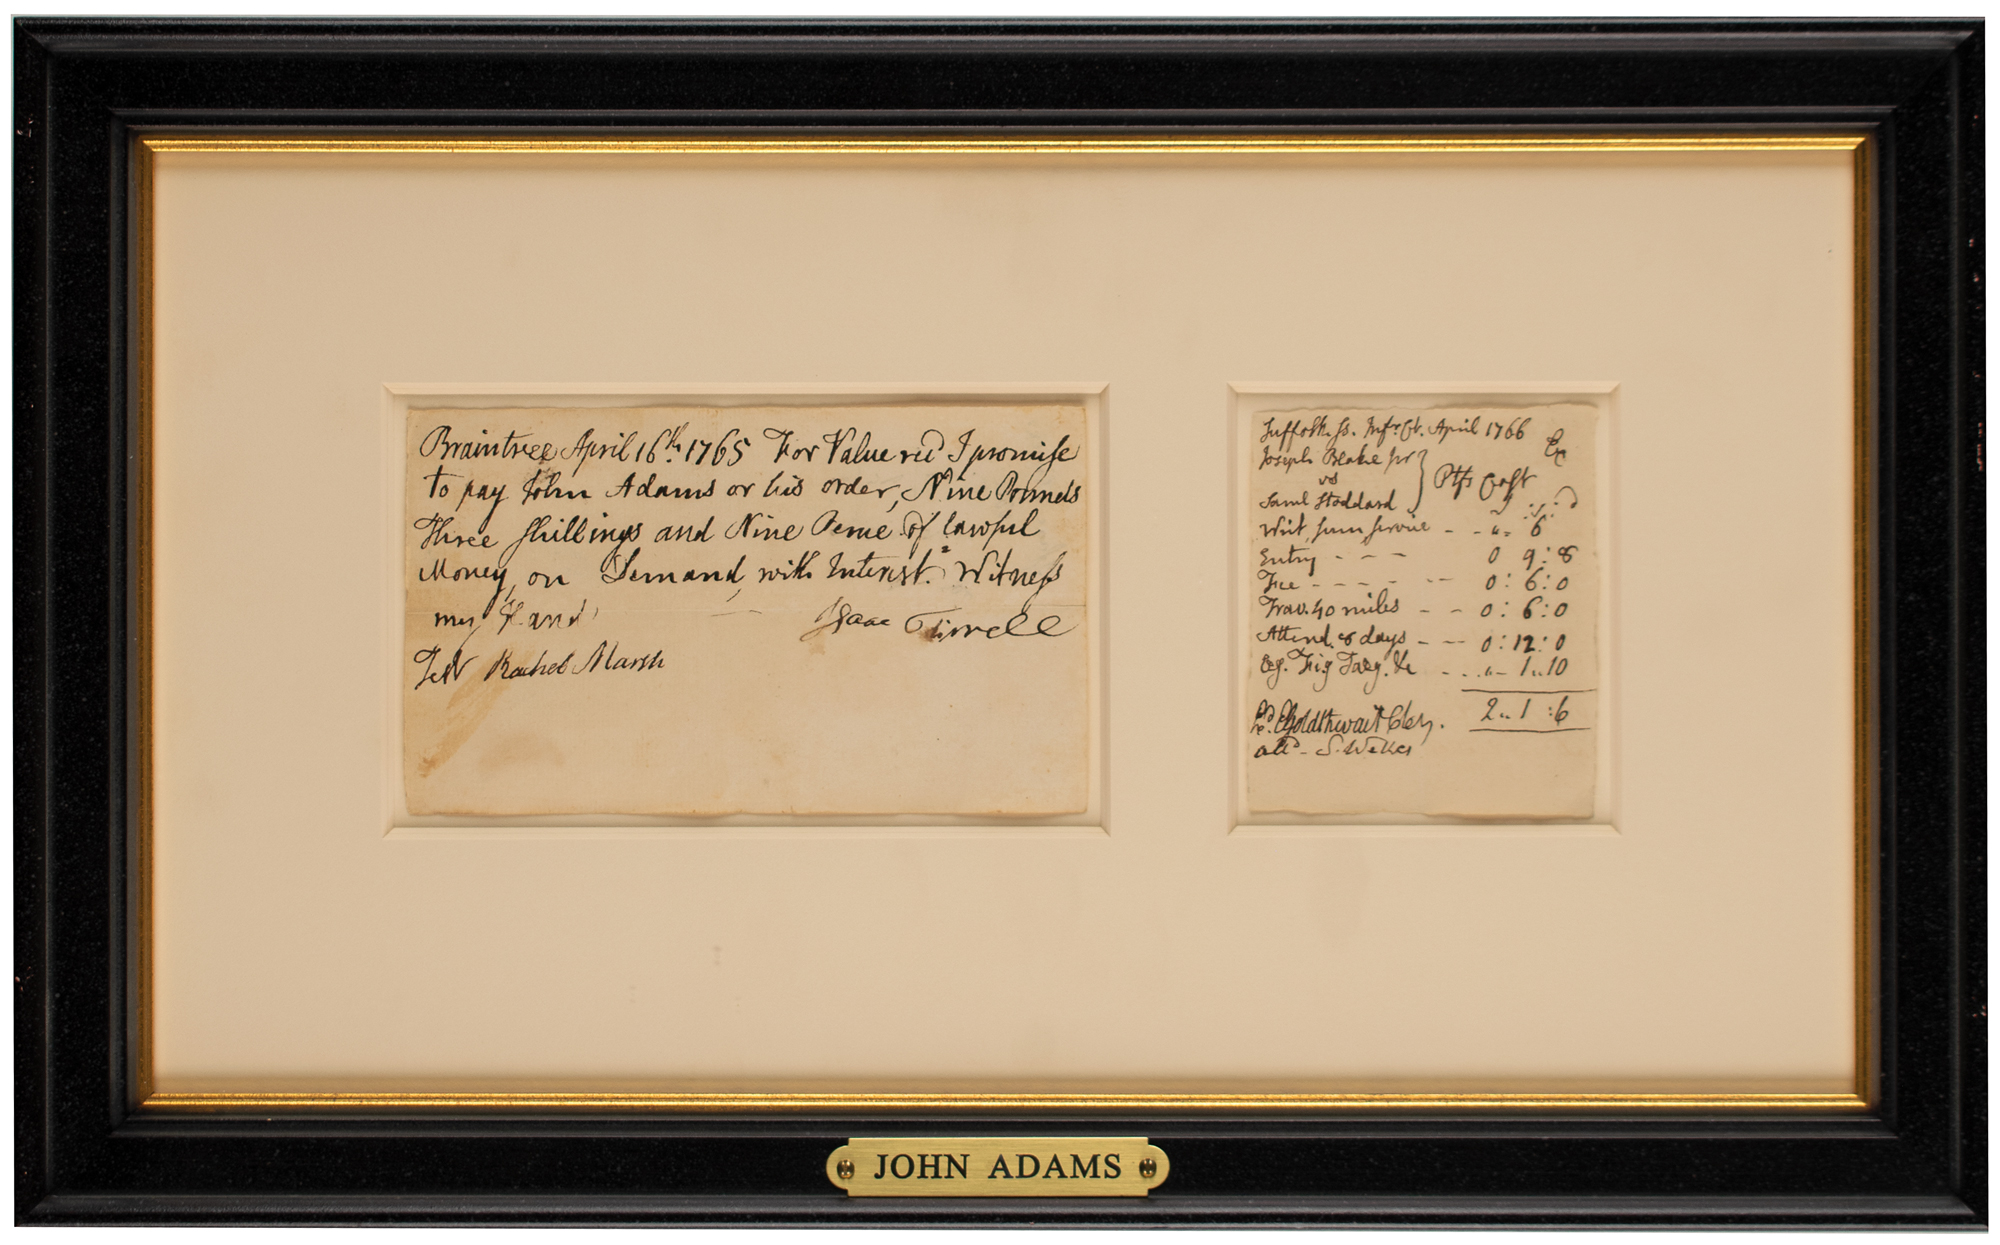 Braintree April 16th. 1765 For Value recd I promise
to pay John Adams or his order, Nine Pounds
Three shillings and Nine Pence of lawful
Money, on Demand, with Interest. Witness
my Hand Isaac Tirrell
Test Rachel Marsh
Suffolk ss. Infr. Ct. April 1766
Ex
Joseph Blake jnr
vs
Saml Stoddard
Ptfs Cost
Writ, sum, service - - " - 6
Entry - - - 0 9:8
Fee - - - - - - 0:6:0
Trav. 40 miles - - 0:6:0
Attend. 8 days - - - 0:12:0
Fig &c - - . . " - 1 " 10
2 " 1 :6
Goldthwait Cler.
attd - S. Welles
JOHN ADAMS